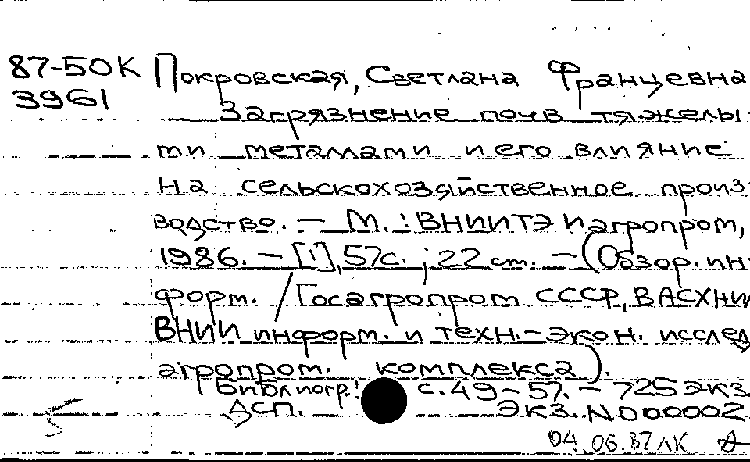 87-50К Покровская, Светлана Францевна
3961 Загрязнение почв тяжелы-
ми металлами и его влияние
на сельскохозяйственное произ-
водство. — М. : ВНИИТЭИагропром,
1986. — [1], 57с. ; 22 см. — (Обзор. ин-
форм. / Госагропром СССР, ВАСХНИ
ВНИИ информ. и техн.-экон. исслед.
агропром. комплекса).
Библиогр.: с. 49-57. — 725 экз.
ДСП. Экз. N 000002
04.06.87 ЛК